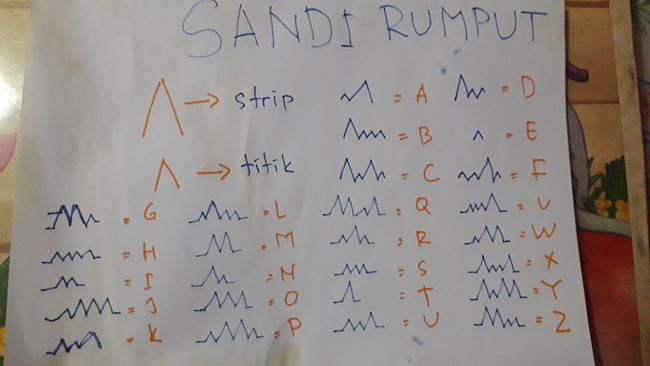 SANDI RUMPUT
→ strip
→ titik
= A
= B
= C
= D
= E
= F
= G
= H
= I
= J
= K
= L
= M
= N
= O
= P
= Q
= R
= S
= T
= U
= U
= W
= X
= Y
= Z